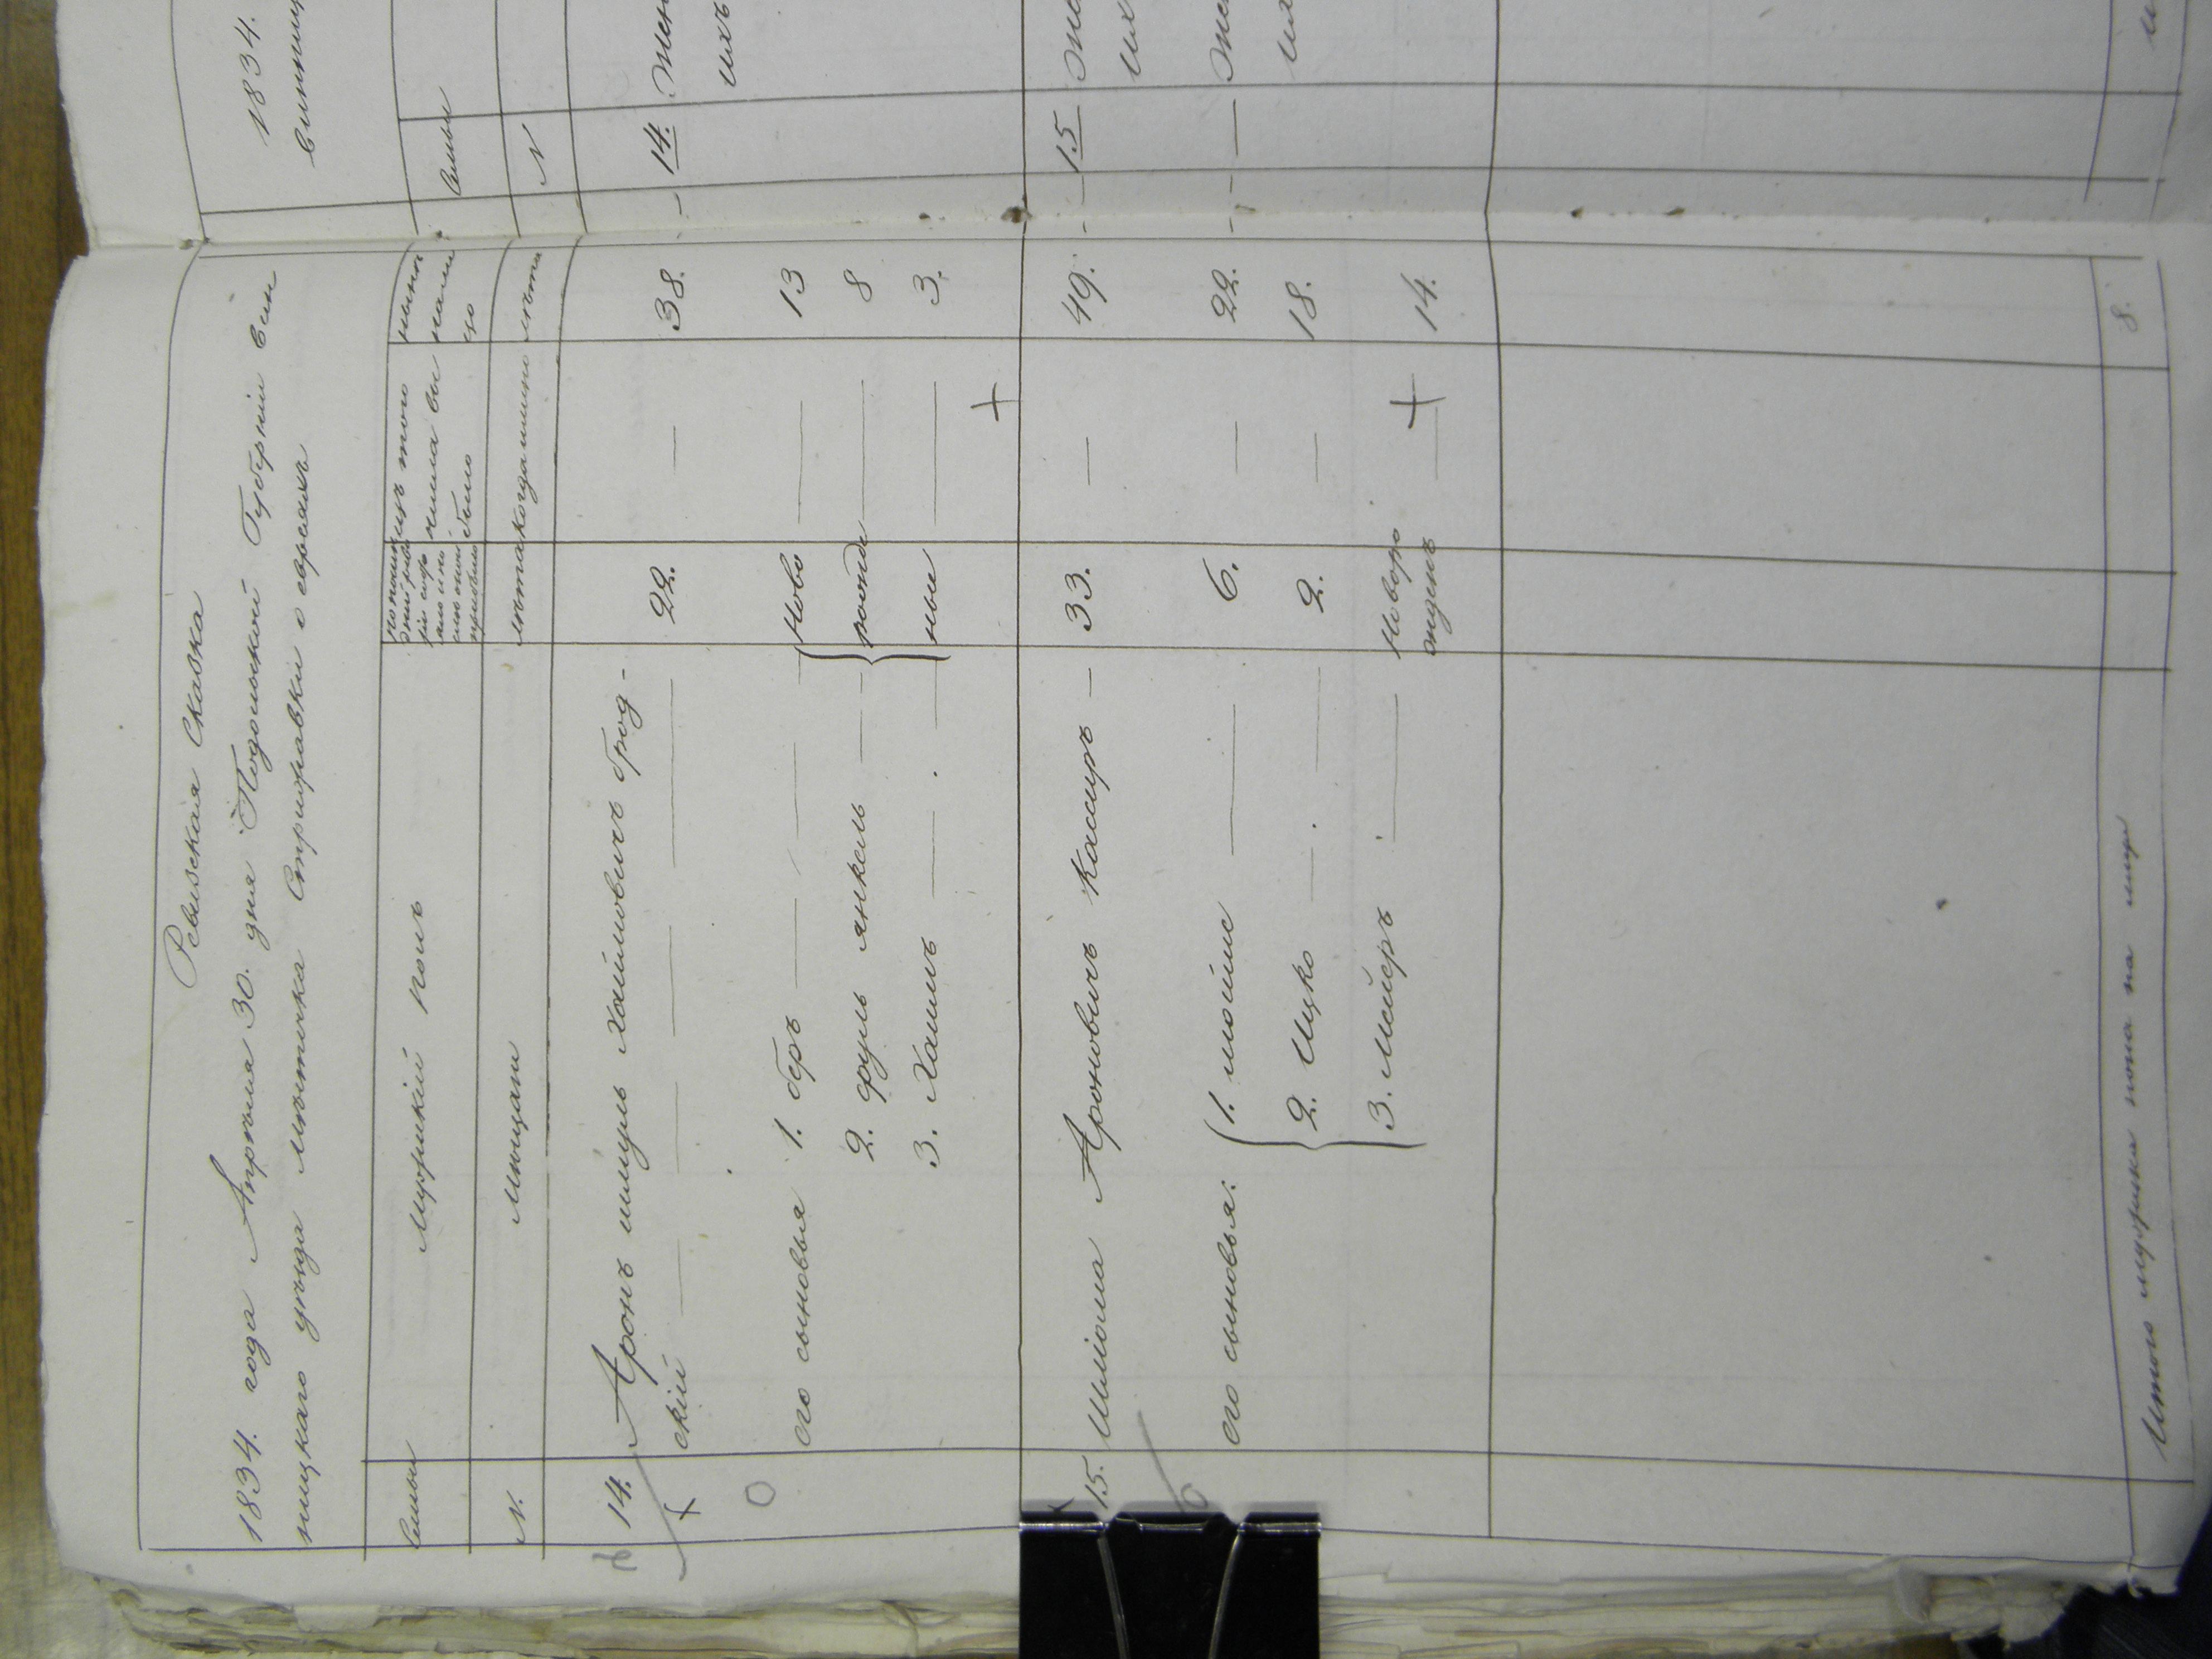 Ревизская Сказка
1834. года Апреля 30. дня Подольской Губернии вин
ницкаго уезда местечка Стрижавки о евреяхъ
Семьи
Мужский полъ
изъ того
числа вы
было
ныне
на ли
цо
N.
Мещани
лета
когда имянно
лета
14. Аронъ шмуль Хаимовичъ брод-
ский
22.
38.
его сыновья 1. беръ
Ново
13
2. сруль янкель
рожде
8
3. Хаимъ
ныи
3.
15. Шміома Ароновичъ Касиръ
33.
49.
его сыновья: 1. мойше
6.
22.
2. Ицко
2.
18.
3. Мейеръ
Новоро
жденъ
14.
Итого мужеска пола на лицо
8.
1834.
винниц
Семьи
N
14.
Жен
ихъ
15
Же
ихъ
Же
ихъ